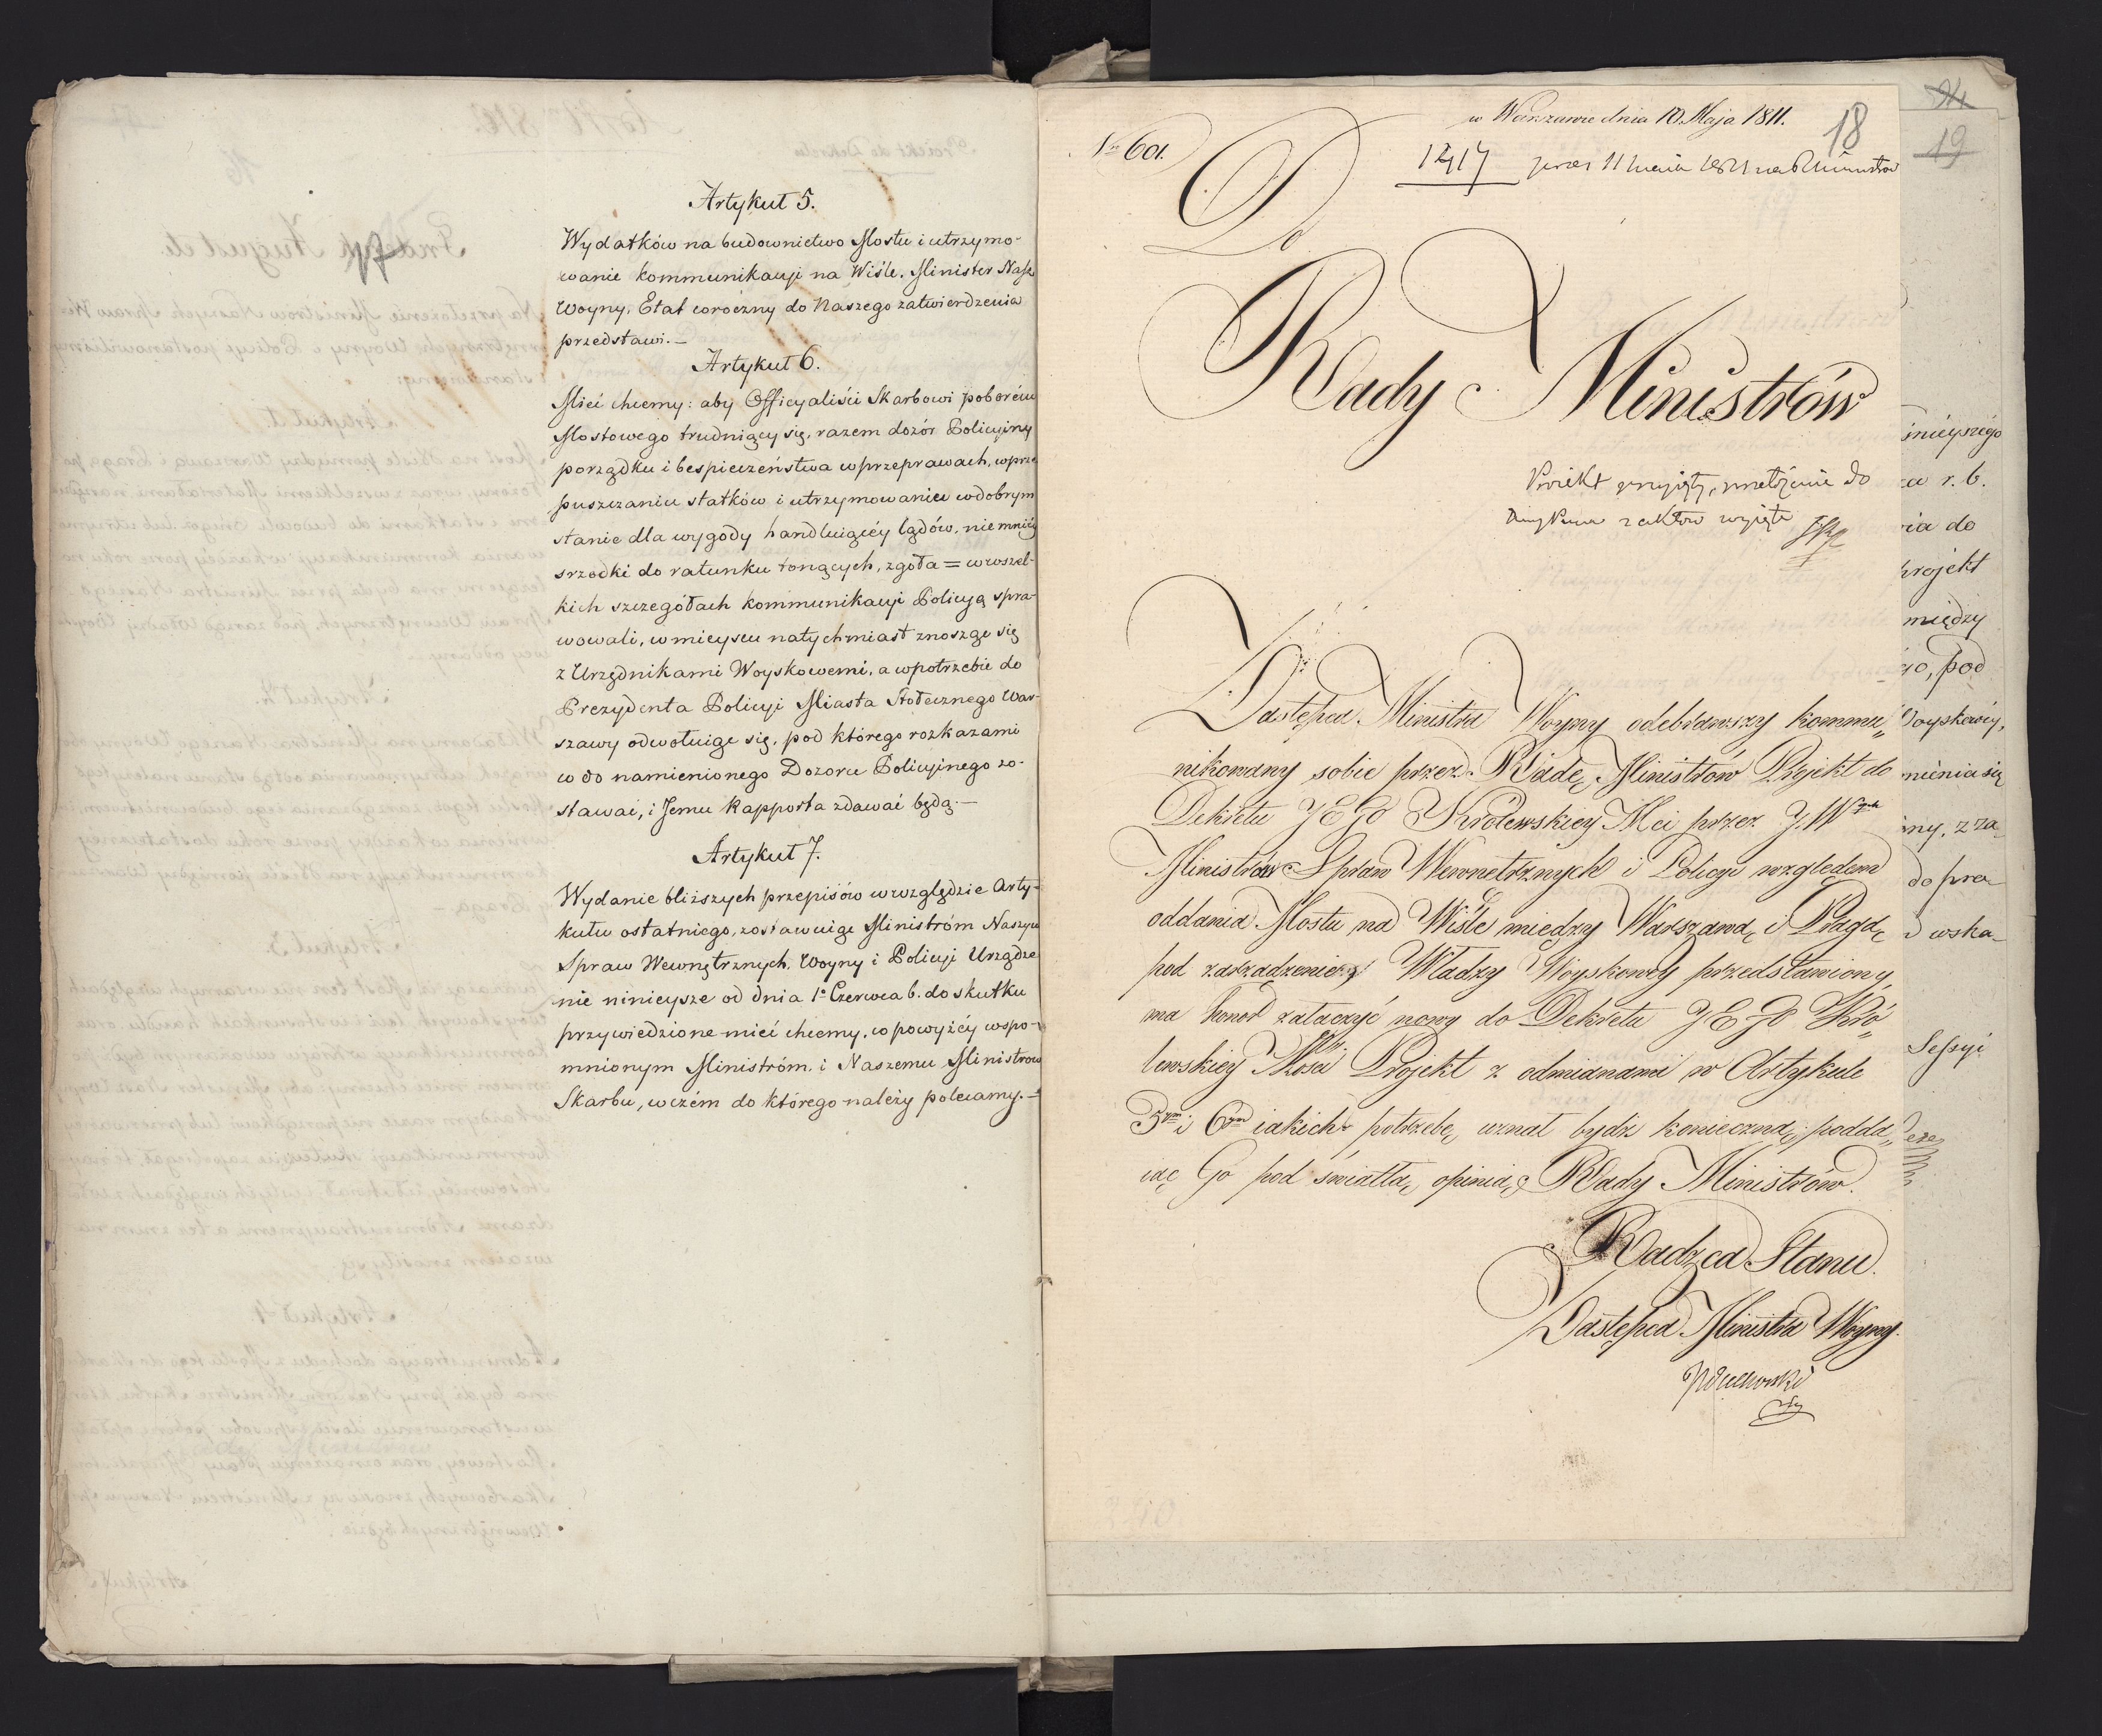 17
Artykuł 5.
Wydatków na budownictwo Mostu i utrzymo-
wanie kommunikacyi na Wiśle. Minister Nasz
Woyny, Etat coroczny do Naszego zatwierdzenia
przedstawi.—
Artykuł 6.
Mieć chcemy: aby Officyaliści Skarbowi poborem
Mostowego trudniący się, razem dozór Policyiny
porządku i bespieczeństwa w przeprawach, w prze
puszczaniu statków i utrzymowaniu w dobrym
stanie dla wygody handluiącéy lądów, niemniéy
srzodki do ratunku tonących, zgoła = w wszel-
kich szczegółach kommunikacyi Policyą spra-
wowali, w mieyscu natychmiast znosząc się
z Urzędnikami Woyskowemi, a w potrzebie do
Prezydenta Policyi Miasta Stołecznego War-
szawy odwołuiąc się, pod którego rozkazami
co do namienionego Dozoru Policyinego zo-
stawać, i Jemu Rapporta zdawać będą.—
Artykuł 7.
Wydanie bliższych przepisów w względzie Arty-
kułu ostatniego, zostawuiąc Ministróm Naszym
Spraw Wewnętrznych, Woyny i Policyi Urządze
nie ninieysze od dnia 1º Czerwca b. do skutku
przywiedzione mieć chcemy, co powyżéy wspo-
mnionym Ministróm, i Naszemu Ministrowi
Skarbu, w czém do którego należy polecamy.—
w Warszawie dnia 10. Maja 1811.
18
Nro 601.
1417
Do
Rady Ministrów
Proiekt przyięty,
Zastępca Ministra Woyny odebrawszy kommu„
nikowany sobie przez Radę Ministrów Projekt do
Dekretu JEGO Królewskiey Mci przez J.W
Ministrów Spraw Wewnętrznych i Policyi względem
oddania Mostu na Wiśle między Warszawą i Pragą
pod zarządzenie Władzy Woyskowey przedstawiony,
ma honor załączyć nowy do Dekretu JEGO Kró„
lewskiey Mości Projekt z odmianami w Artykule
5tym i 6tym iakich potrzebę uznał bydź konieczną, podda„
iąc Go pod światłą opinią Rady Ministrów.
Radzca Stanu.
Zastępca Ministra Woyny.
Wielhorski
19
śnieyszego
ca r. b.
ia do
projekt
między
go, pod
Woyskowéy,
nienia się
ny, z za-
do pra-
wska-
Sessyi